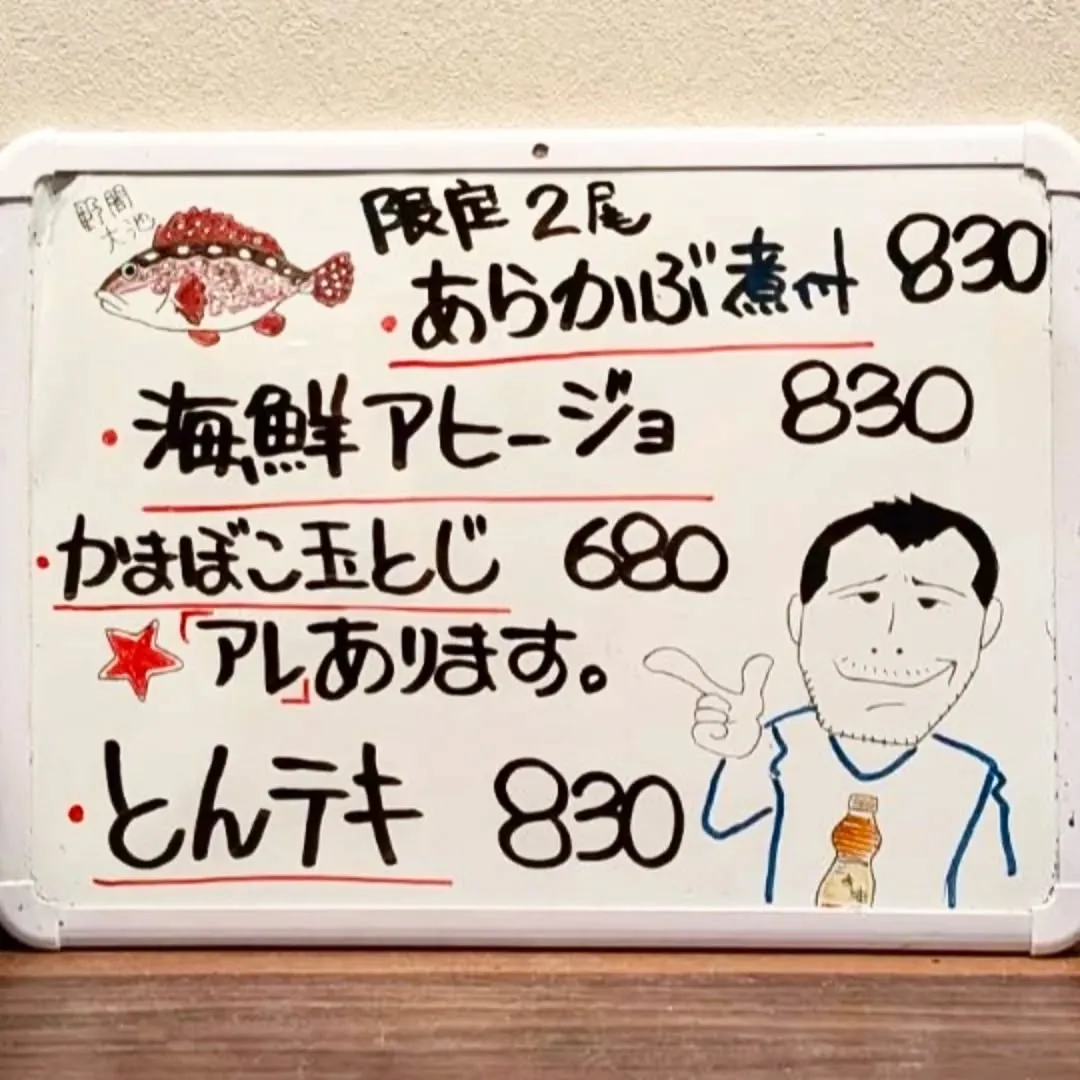 野間
大池
限定2尾
・あらかぶ煮付 830
・海鮮アヒージョ 830
・かまぼこ玉とじ 680
「アレ」あります。
・とんテキ 830